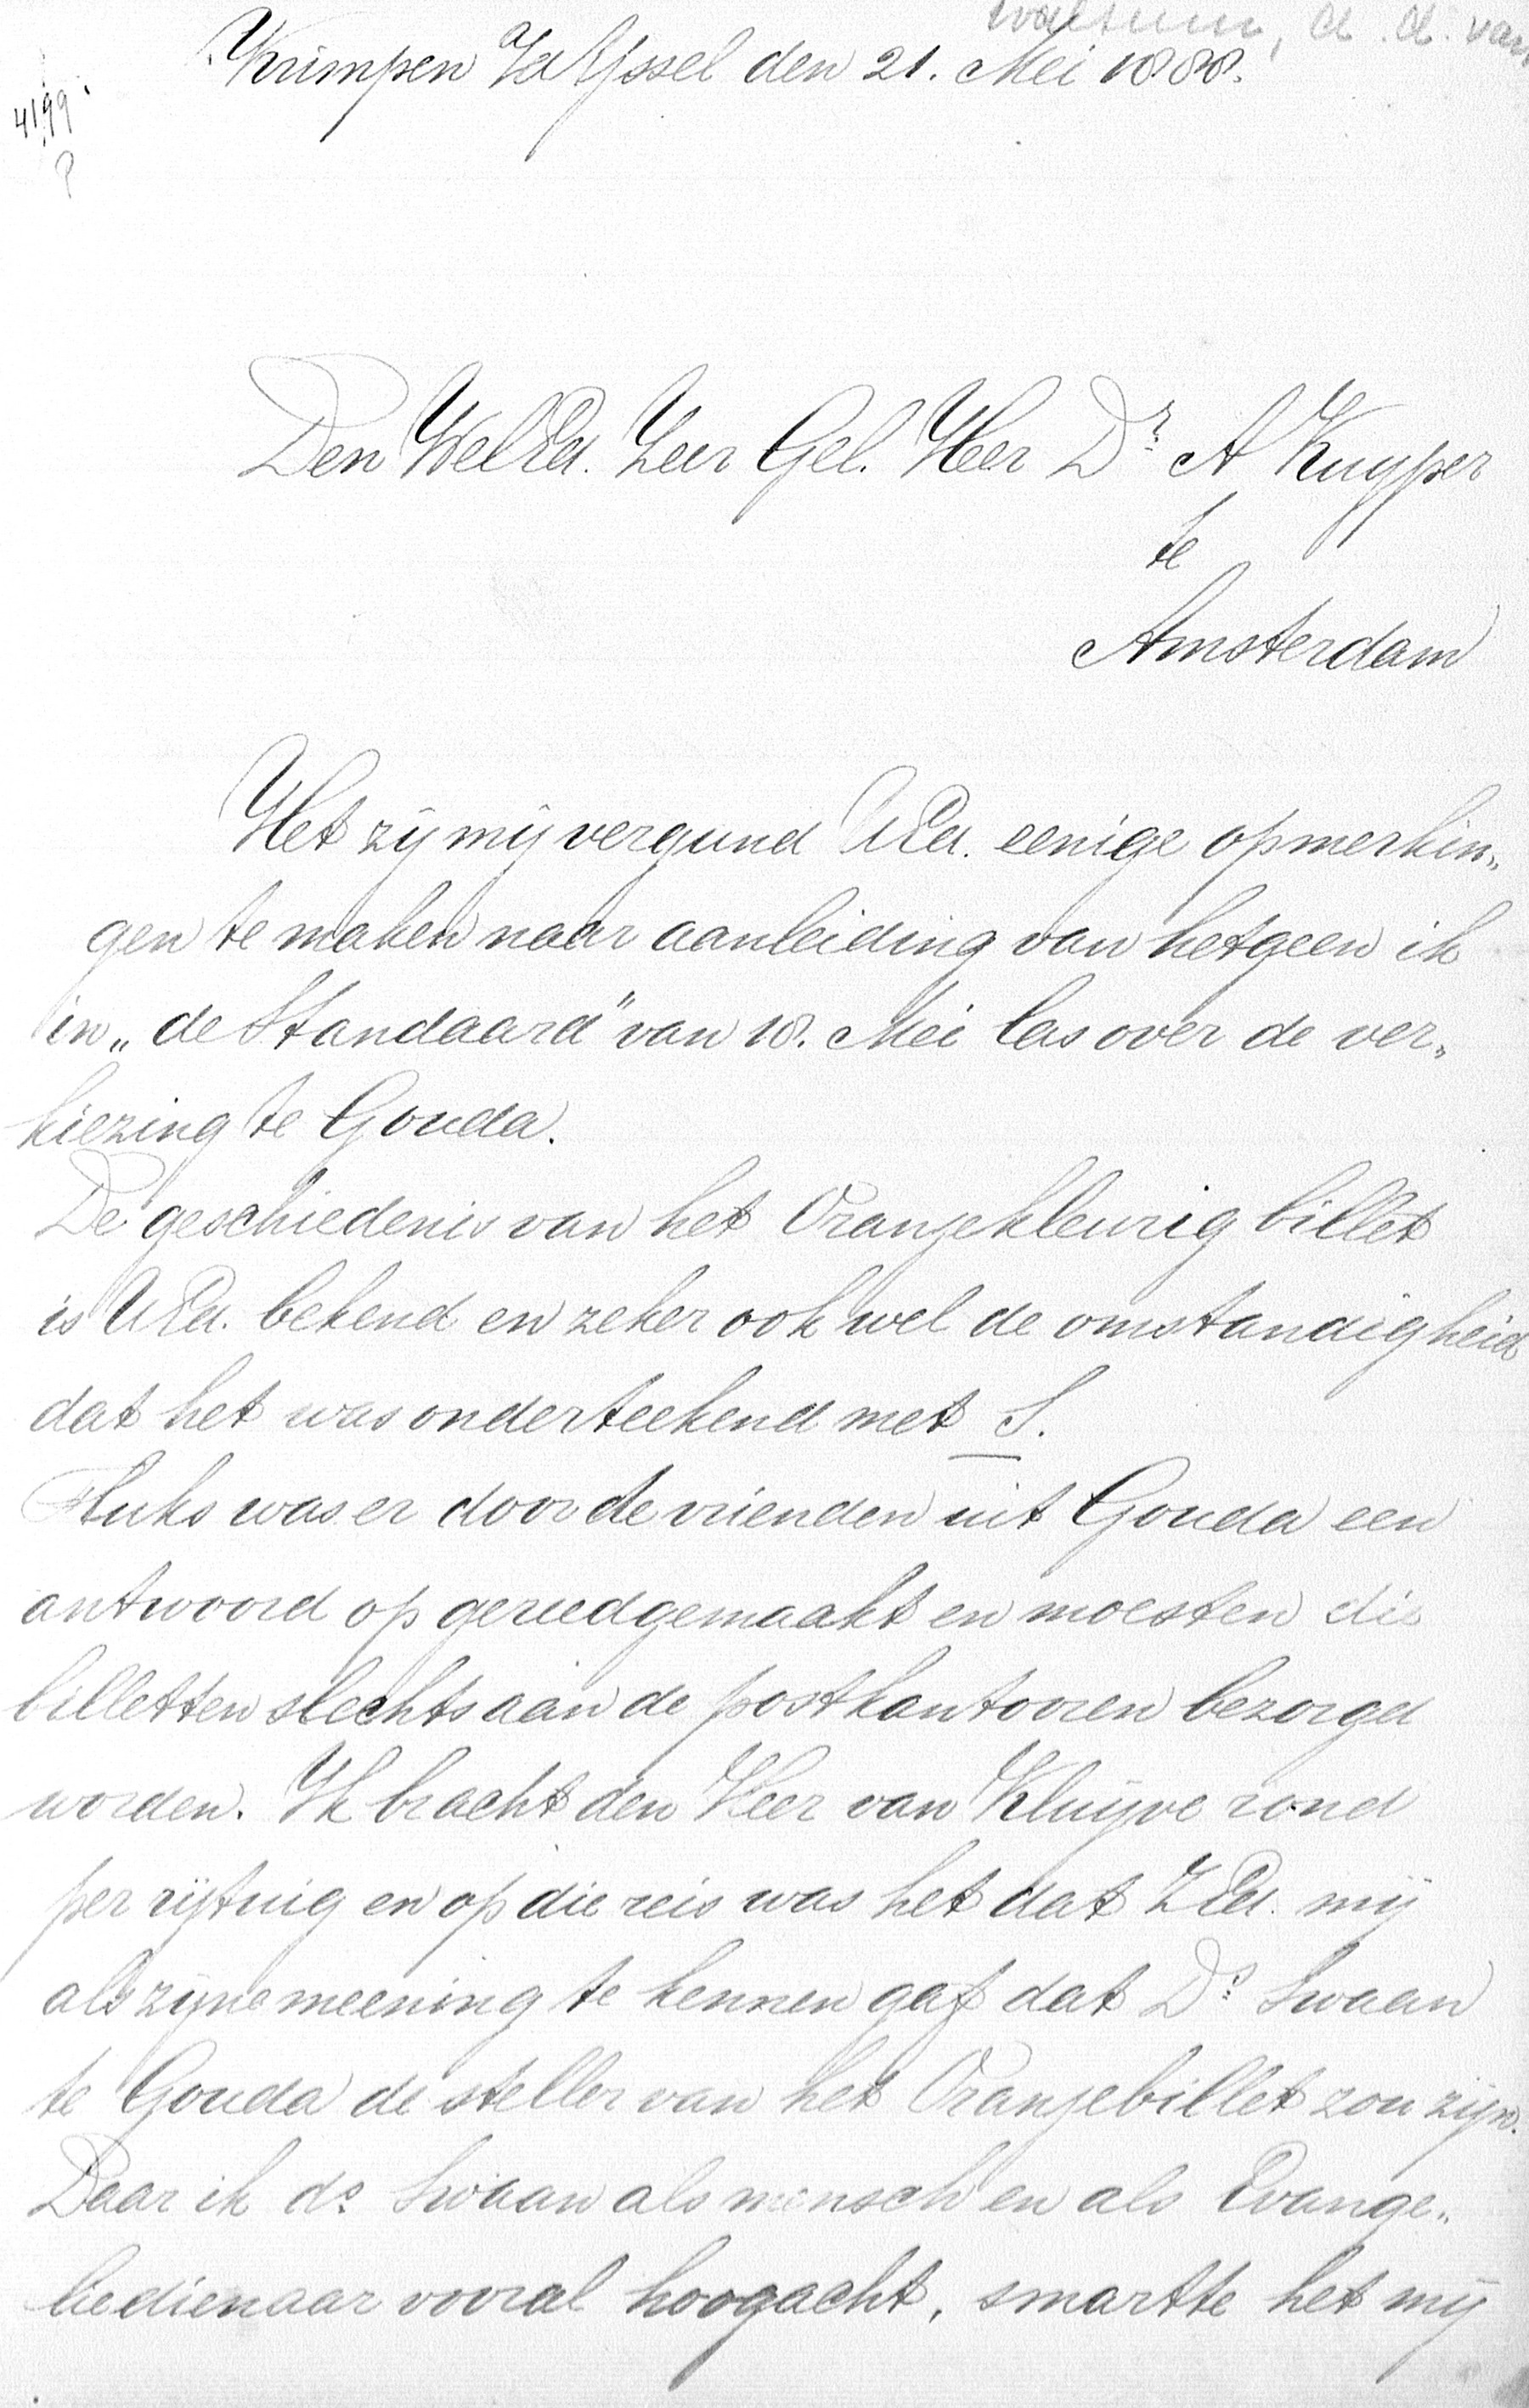 d. d. van
Krimpen a/d IJssel den 21. Mei 1888.
4199.
?
Den WelEd. Zeer Gel. Heer Dr. A Kuyper
te
Amsterdam
Het zij mij vergund UEd. eenige opmerkin„
gen te maken naar aanleiding van hetgeen ik
in „de Standaard" van 18. Mei las over de ver„
kiezing te Gouda.
De geschiedenis van het Oranjekleurig billet
is UEd. bekend en zeker ook wel de omstandigheid
dat het was onderteekend met S.
Fluks was er door de vrienden uit Gouda een
antwoord op gereedgemaakt en moesten die
billetten slechts aan de postkantooren bezorgd
worden. Ik bracht den Heer van Kluijve rond
per rijtuig en op die reis was het dat ZEd. mij
als zijne meening te kennen gaf dat Ds. Swaan
te Gouda de steller van het Oranjebillet zou zijn.
Daar ik ds. Swaan als mensch en als Evange„
liedienaar vooral hoogacht, smartte het mij